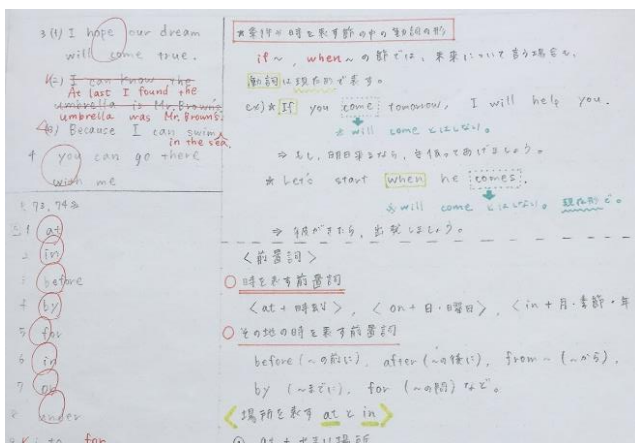 3 (1) I hope our dream
will come true.
(2) I can know the
At last I found the
umbrella is Mr. Brown's
umbrella was Mr. Brown's
(3) Because I can swim
in the sea.
4 you can go there
with me
P. 73, 74
1 at
2 in
3 before
4 by
5 for
6 in
7 on
8 under
to for
★条件や時を表す節の中の動詞の形
if~, when~の節では、未来について言う場合も、
動詞は現在形で表す。
ex) ★ If you come tomorrow, I will help you.
☆ will come とはしない。
⇒ もし、明日来るなら、手伝ってあげましょう。
★ Let's start when he comes.
☆ will come とはしない。現在形で。
⇒ 彼がきたら、出発しましょう。
<前置詞>
○ 時を表す前置詞
<at + 時刻>, <on + 日・曜日>, <in + 月・季節・年
○ その他の時を表す前置詞
before (~の前に), after (~の後に), from ~ (~から),
by (~までに), for (~の間) など。
<場所を表す at と in>
at + 場所